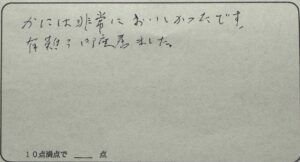 かには非常においしかったです。
有難う御座居ました。
10点満点で ___ 点